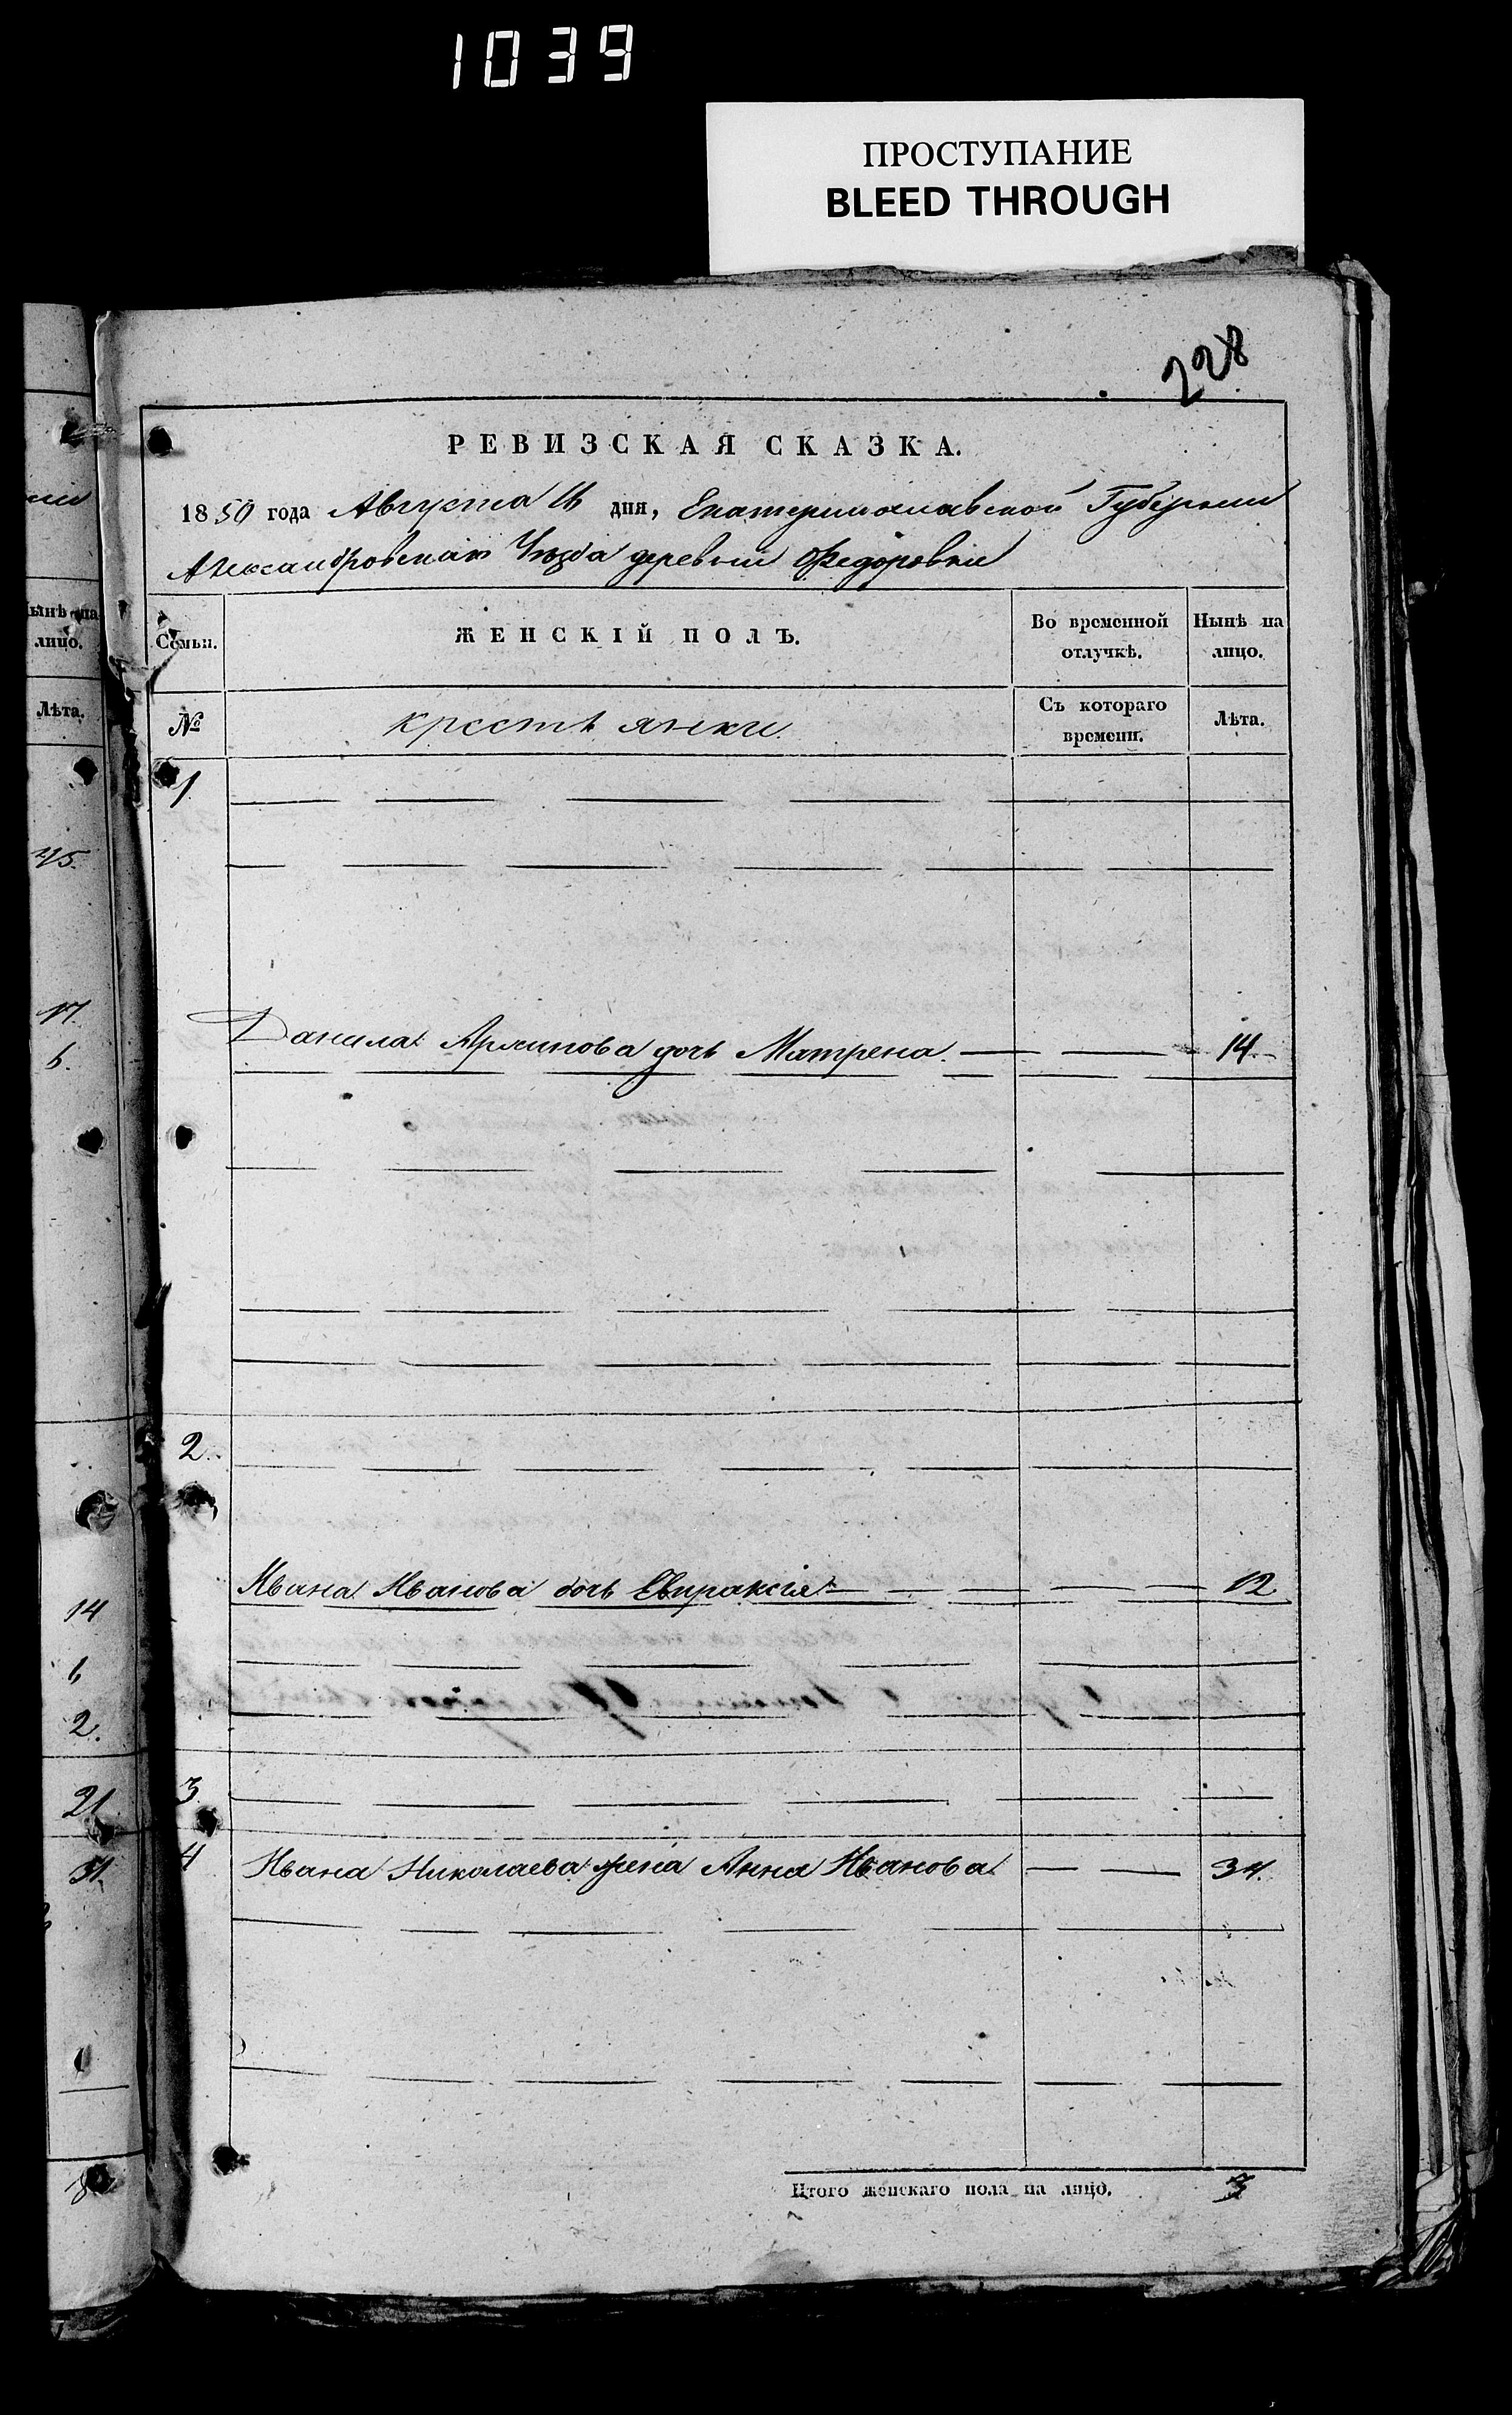 1039
ПРОСТУПАНИЕ
BLEED THROUGH
228
РЕВИЗСКАЯ СКАЗКА.
1850 года Августа 16 дня, Екатеринославской Губернии
Александровскаго Уѣзда деревни Федоровки
Семьи.
ЖЕНСКІЙ ПОЛЪ.
Во временной отлучкѣ.
Нынѣ на лицо.
№
крестьянки
Съ котораго времени.
Лѣта.
1
Данила Архипова дочь Матрена 14
2.
Ивана Иванова дочь Евпраксія 12
3
4 Ивана Николаева жена Анна Иванова 34.
Итого женскаго пола на лицо. 3
лицо.
Лѣта.
45.
17.
6.
14
2.
21